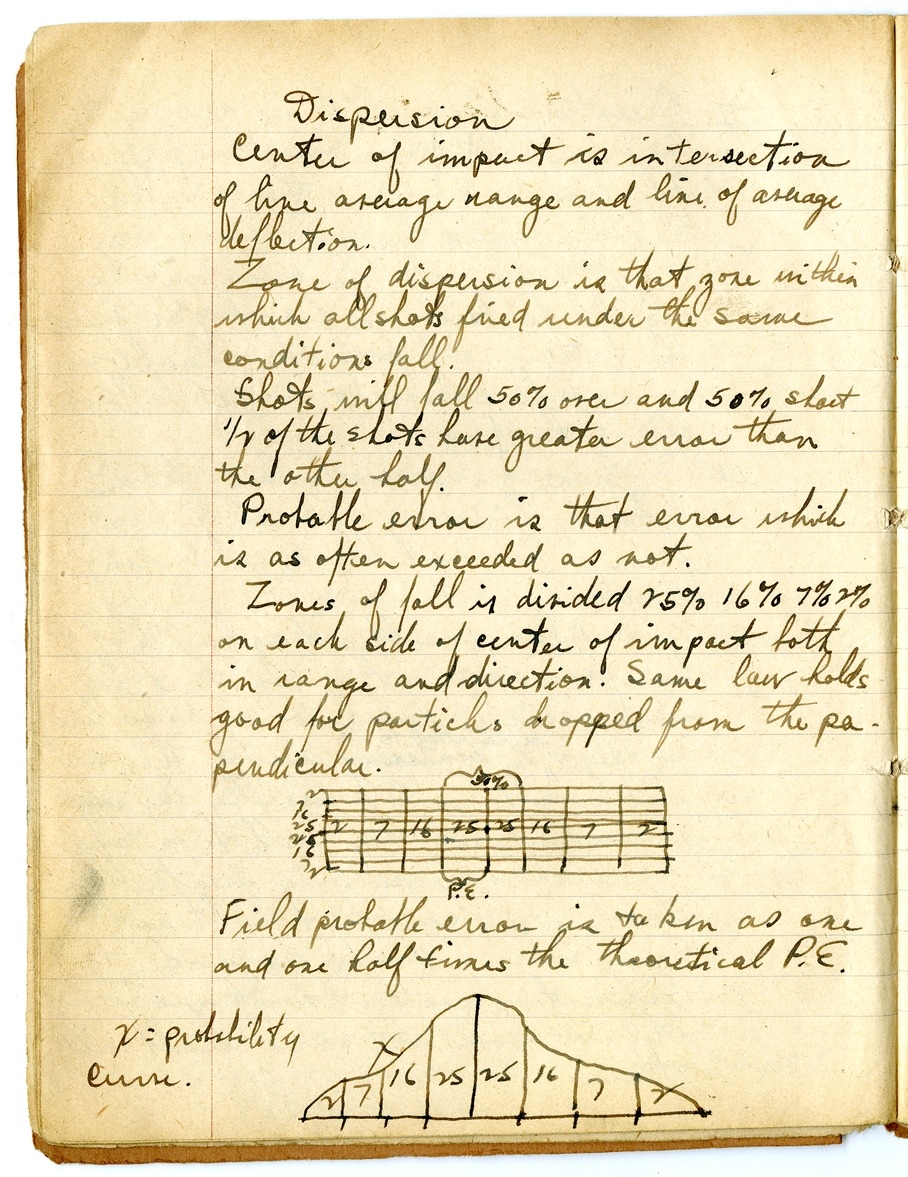 Dispersion
Center of impact is intersection
of line average range and line of average
deflection.
Zone of dispersion is that zone within
which all shots fired under the same
conditions fall.
Shots will fall 50% over and 50% short
1/2 of the shots have greater error than
the other half.
Probable error is that error which
is as often exceeded as not.
Zones of fall is divided 25% 16% 7% 2%
on each side of center of impact both
in range and direction. Same law holds
good for particls dropped from the pa-
pendicular.
50%
2
7
16
25
25
16
7
2
2 7 16 25 25 16 7 2
P.E.
Field probable error is taken as one
and one half times the theoretical P.E.
x = probability
curve.
x
2 7 16 25 25 16 7 2